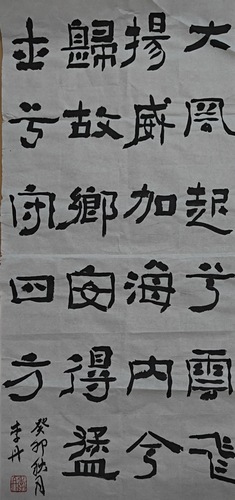 大風起兮雲飛
揚威加海内兮
歸故鄉安得猛
士兮守四方
癸卯秋月
李丹